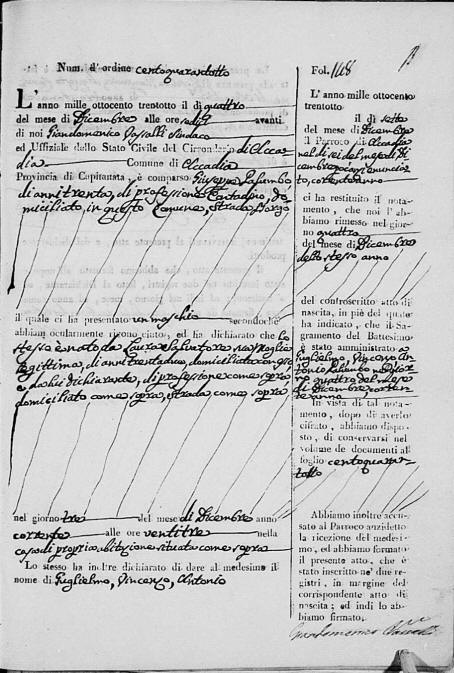 Num. d'ordine centoquarantotto
L'anno mille ottocento trentotto il dì quattro
del mese di Dicembre alle ore sedici avanti
di noi Giandomenico Sindaco
ed Uffiziale dello Stato Civile del Circondario di Acca
dia Comune di Accadia
Provincia di Capitanata, è comparso Giuseppe Palumbo
di anni trenta, di professione Contadino, do
miciliato, in questo Comune, strada Borgo
il quale ci ha presentato un maschio secondochè
abbiam ocularmente riconosciuto, ed ha dichiarato che lo
stesso è nato da Laura Salvatore sua moglie
legittima, di anni trenta due domiciliata con esso
e da lui dichiarante, di professione come sopra
domiciliato come sopra, strada come sopra
nel giorno tre del mese di Dicembre anno
corrente alle ore ventitre nella
casa di propria abitazione situata come sopra
Lo stesso ha inoltre dichiarato di dare al medesimo il
nome di Guglielmo, Vincenzo, Antonio
Fol. 148
L'anno mille ottocento
trentotto
il dì sette
del mese di Dicembre
il Parroco di Accadia
nel dì sei del mese di Di
cembre
corrente anno
ci ha restituito il nota-
mento, che noi l'ab-
biamo rimesso nel gior-
no quattro
del mese di Dicembre
dello stesso anno
del controscritto atto di
nascita, in piè del quale
ha indicato, che il Sa-
gramento del Battesimo
è stato amministrato a
Guglielmo, Vincenzo An
tonio Palumbo nel gior
no quattro del mese
di Dicembre corren
te anno
In vista di tal nota-
mento, dopo di averlo
cifrato, abbiamo dispo-
sto, di conservarsi nel
volume de documenti al
foglio centoquaran
totto
Abbiamo inoltre accu-
sato al Parroco anzidetto
la ricezione del medesi-
mo, ed abbiamo formato
il presente atto, che è
stato inscritto ne' due re-
gistri, in margine del
corrispondente atto di
nascita; ed indi lo ab-
biamo firmato.
Giandomenico